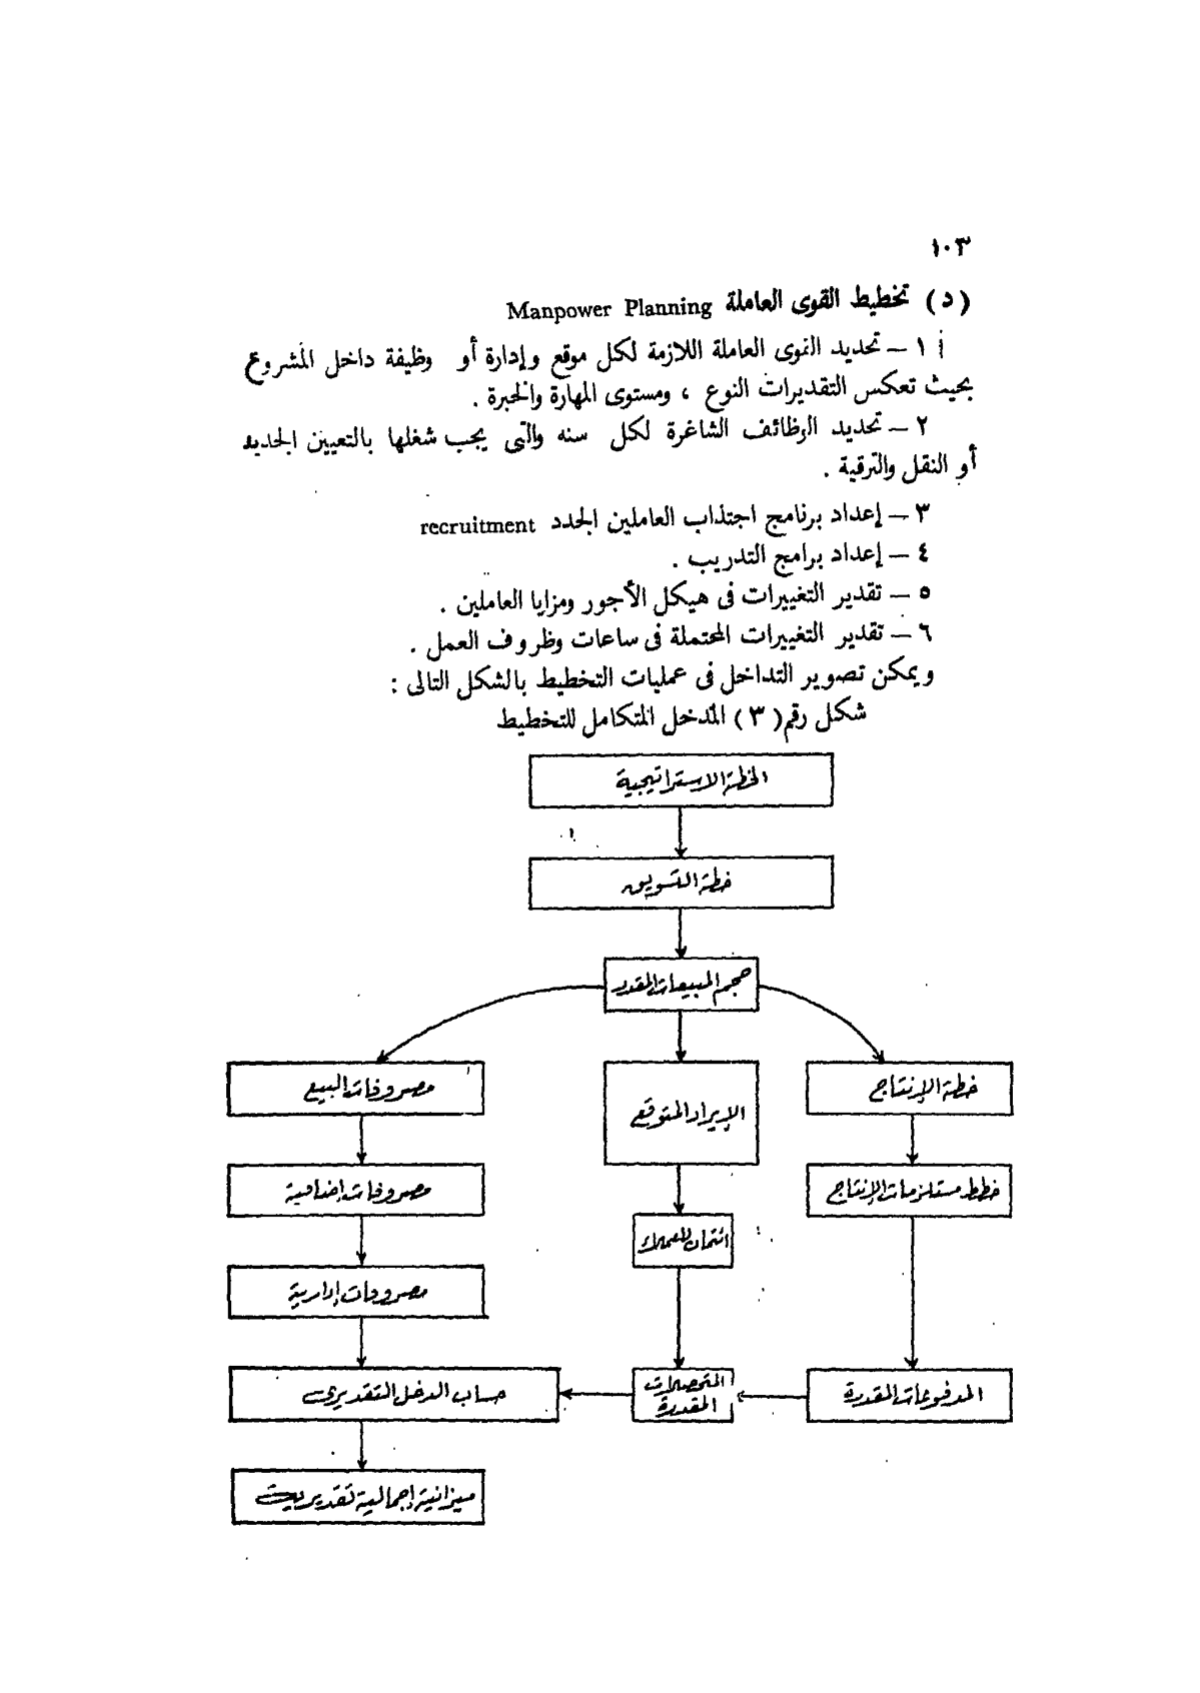 ١٠٣
(د) تخطيط القوى العاملة Manpower Planning
١ – تحديد القوى العاملة اللازمة لكل موقع وإدارة أو وظيفة داخل المشروع
بحيث تعكس التقديرات النوع ، ومستوى المهارة والخبرة .
٢ – تحديد الوظائف الشاغرة لكل سنه والتى يجب شغلها بالتعيين الجديد
أو النقل والترقية .
٣ – إعداد برنامج اجتذاب العاملين الجدد recruitment
٤ – إعداد برامج التدريب .
٥ – تقدير التغييرات فى هيكل الأجور ومزايا العاملين .
٦ – تقدير التغييرات المحتملة فى ساعات وظروف العمل .
ويمكن تصوير التداخل فى عمليات التخطيط بالشكل التالى :
شكل رقم ( ٣ ) المدخل المتكامل للتخطيط
الخطة الاستراتيجية
خطة التسويق
حجم المبيعات المقدر
خطة الإنتاج
الإيراد المتوقع
مصروفات البيع
خطط مستلزمات الإنتاج
مصروفات إضافية
ائتمان للعملاء
مصروفات إدارية
المدفوعات المقدرة
المتحصلات
المقدرة
حساب الدخل التقديرى
ميزانية إجمالية تقديرية